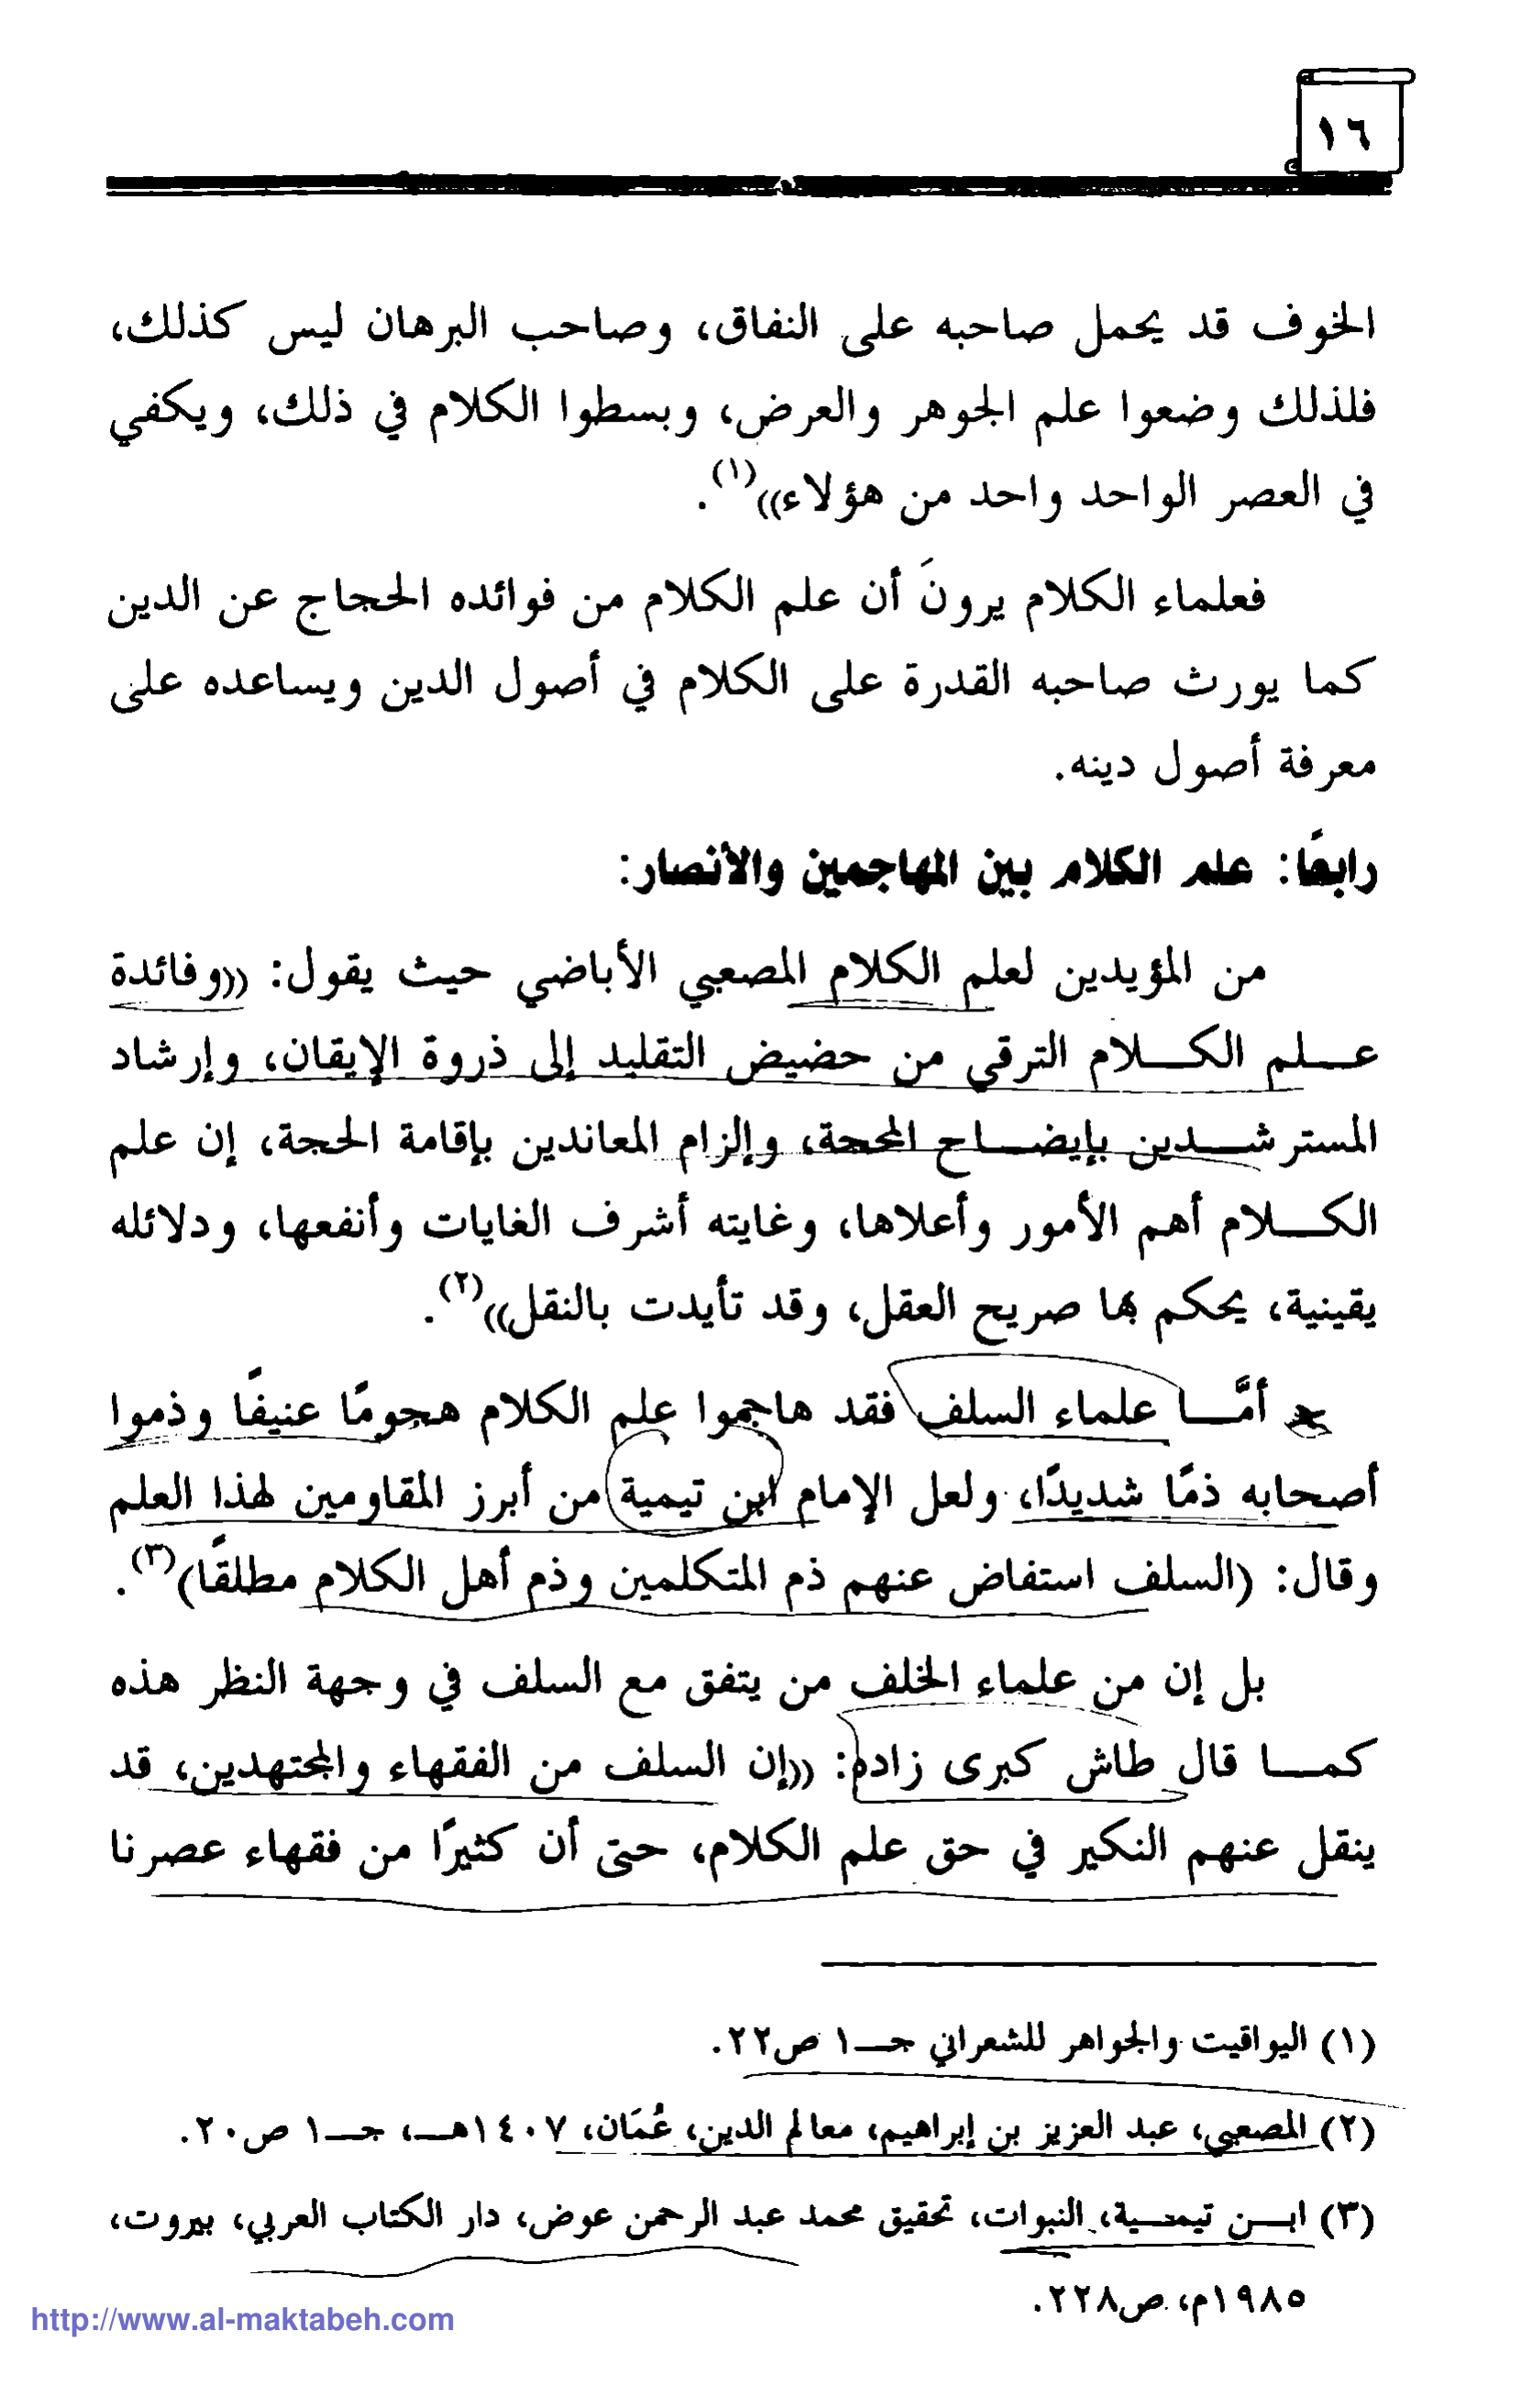 ١٦
الخوف قد يحمل صاحبه على النفاق، وصاحب البرهان ليس كذلك،
فلذلك وضعوا علم الجوهر والعرض، وبسطوا الكلام في ذلك، ويكفي
في العصر الواحد واحد من هؤلاء»(١).
فعلماء الكلام يرونَ أن علم الكلام من فوائده الحجاج عن الدين
كما يورث صاحبه القدرة على الكلام في أصول الدين ويساعده على
معرفة أصول دينه.
رابعًا: علم الكلام بين المهاجمين والأنصار:
من المؤيدين لعلم الكلام المصعبي الأباضي حيث يقول: «وفائدة
عـــلم الكـــلام الترقي من حضيض التقليد إلى ذروة الإيقان، وإرشاد
المسترشـــدين بإيضـــاح المحجة، وإلزام المعاندين بإقامة الحجة، إن علم
الكـــلام أهم الأمور وأعلاها، وغايته أشرف الغايات وأنفعها، ودلائله
يقينية، يحكم بها صريح العقل، وقد تأيدت بالنقل»(٢).
أمَّـــا علماء السلف فقد هاجموا علم الكلام هجومًا عنيفًا وذموا
أصحابه ذمًا شديدًا، ولعل الإمام ابن تيمية من أبرز المقاومين لهذا العلم
وقال: (السلف استفاض عنهم ذم المتكلمين وذم أهل الكلام مطلقًا)(٣).
بل إن من علماء الخلف من يتفق مع السلف في وجهة النظر هذه
كمـــا قال طاش كبرى زاده: «إن السلف من الفقهاء والمجتهدين، قد
ينقل عنهم النكير في حق علم الكلام، حتى أن كثيرًا من فقهاء عصرنا
(١) اليواقيت والجواهر للشعراني جـــ١ ص٢٢.
(٢) المصعبي، عبد العزيز بن إبراهيم، معالم الدين، عُمَان، ١٤٠٧هـــ، جـــ١ ص٢٠.
(٣) ابـــن تيمـــية، النبوات، تحقيق محمد عبد الرحمن عوض، دار الكتاب العربي، بيروت،
١٩٨٥م، ص٢٢٨.
http://www.al-maktabeh.com